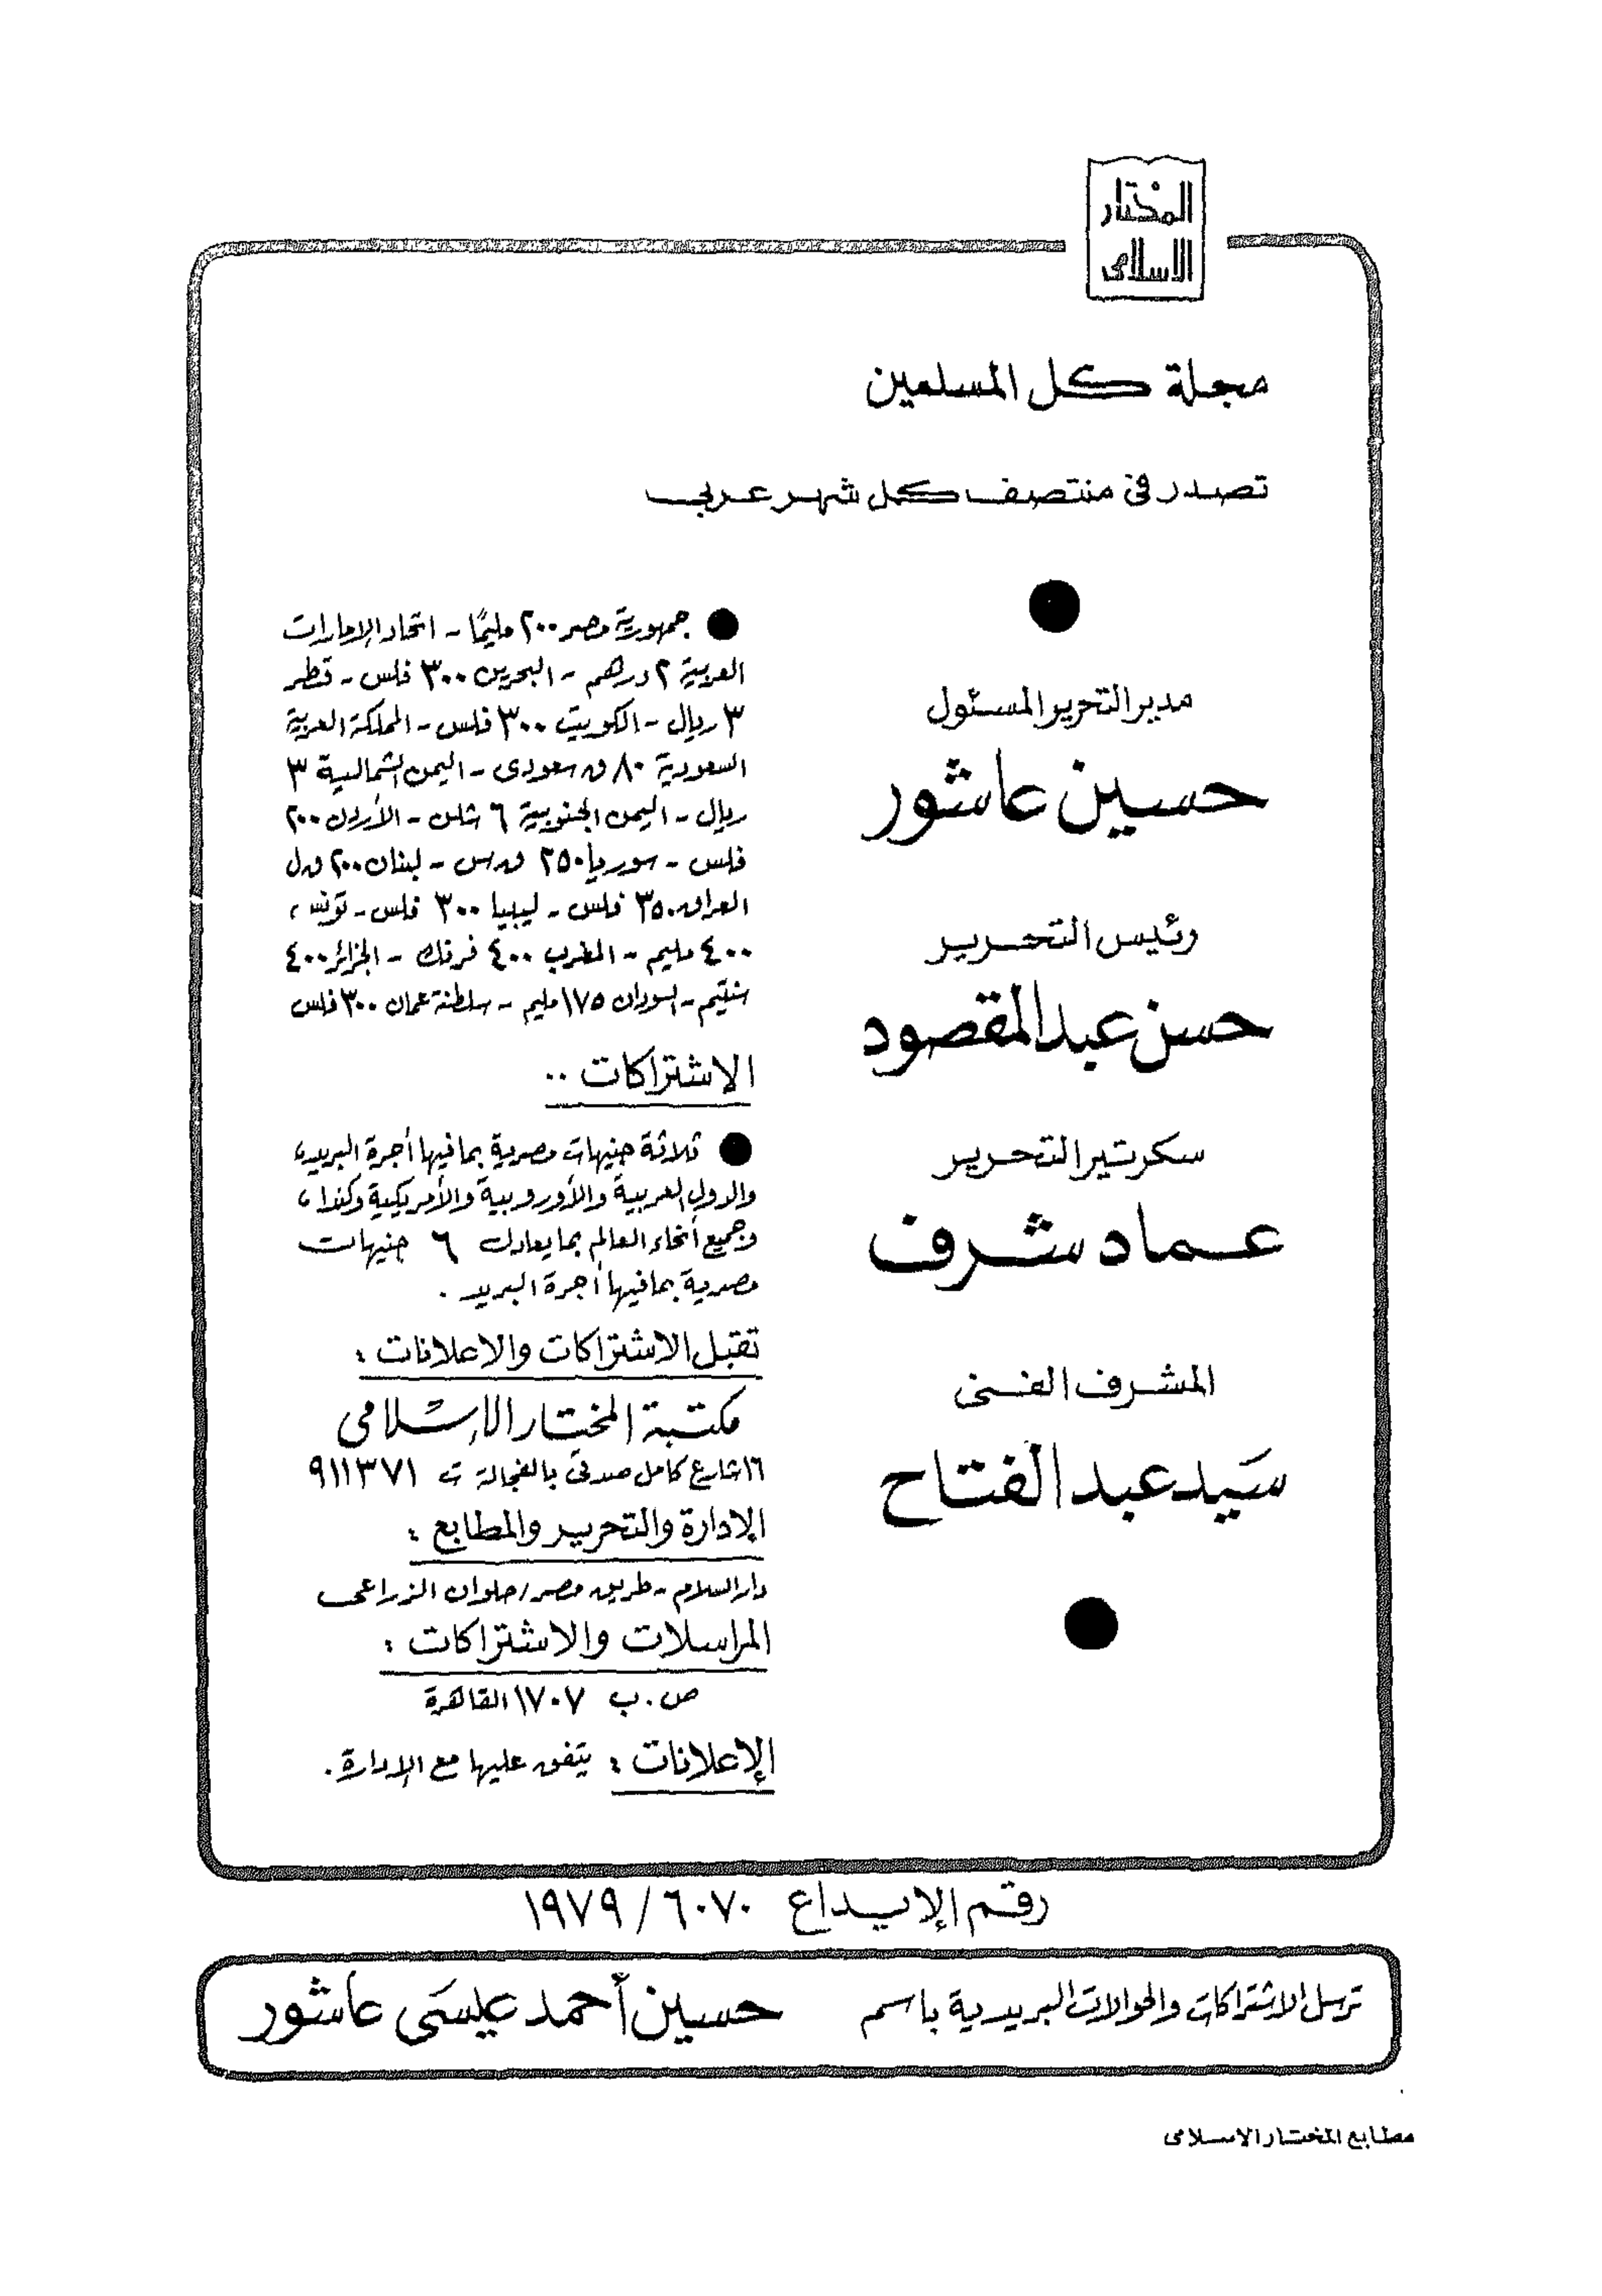 المختار
الاسلامى
مجلة كل المسلمين
تصدر فى منتصف كل شهر عربى
مدير التحرير المسئول
حسين عاشور
رئيس التحرير
حسن عبد المقصود
سكرتير التحرير
عماد شرف
المشرف الفنى
سيد عبد الفتاح
● جمهورية مصر ٢٠٠ مليمًا - اتحاد الإمارات
العربية ٢ درهم - البحرين ٣٠٠ فلس - قطر
٣ ريال - الكويت ٣٠٠ فلس - المملكة العربية
السعودية ٨٠ ق سعودى - اليمن الشمالية ٣
ريال - اليمن الجنوبية ٦ شلن - الأردن ٢٠٠
فلس - سوريا ٢٥٠ ق.س - لبنان ٢٠٠ ق.ل
العراق ٣٥٠ فلس - ليبيا ٣٠٠ فلس - تونس،
٤٠٠ مليم - المغرب ٤٠٠ فرنك - الجزائر ٤٠٠
سنتيم - السودان ١٧٥ مليم - سلطنة عمان ٣٠٠ فلس
الاشتراكات ..
● ثلاثة جنيهات مصرية بما فيها أجرة البريد،
والدول العربية والأوروبية والأمريكية وكندا،
وجميع أنحاء العالم بما يعادل ٦ جنيهات
مصرية بما فيها أجرة البريد .
تقبل الاشتراكات والاعلانات :
مكتبة المختار الإسلامى
١٦ شارع كامل صدقى بالفجالة ت ٩١١٣٧١
الإدارة والتحرير والمطابع :
دار السلام - طريق مصر/حلوان الزراعى
المراسلات والاشتراكات :
ص.ب ١٧٠٧ القاهرة
الإعلانات : يتفق عليها مع الإدارة.
رقم الإيداع ٦٠٧٠ / ١٩٧٩
ترسل الاشتراكات والحوالات البريدية باسم حسين أحمد عيسَى عاشور
مطابع المختار الاسلامى